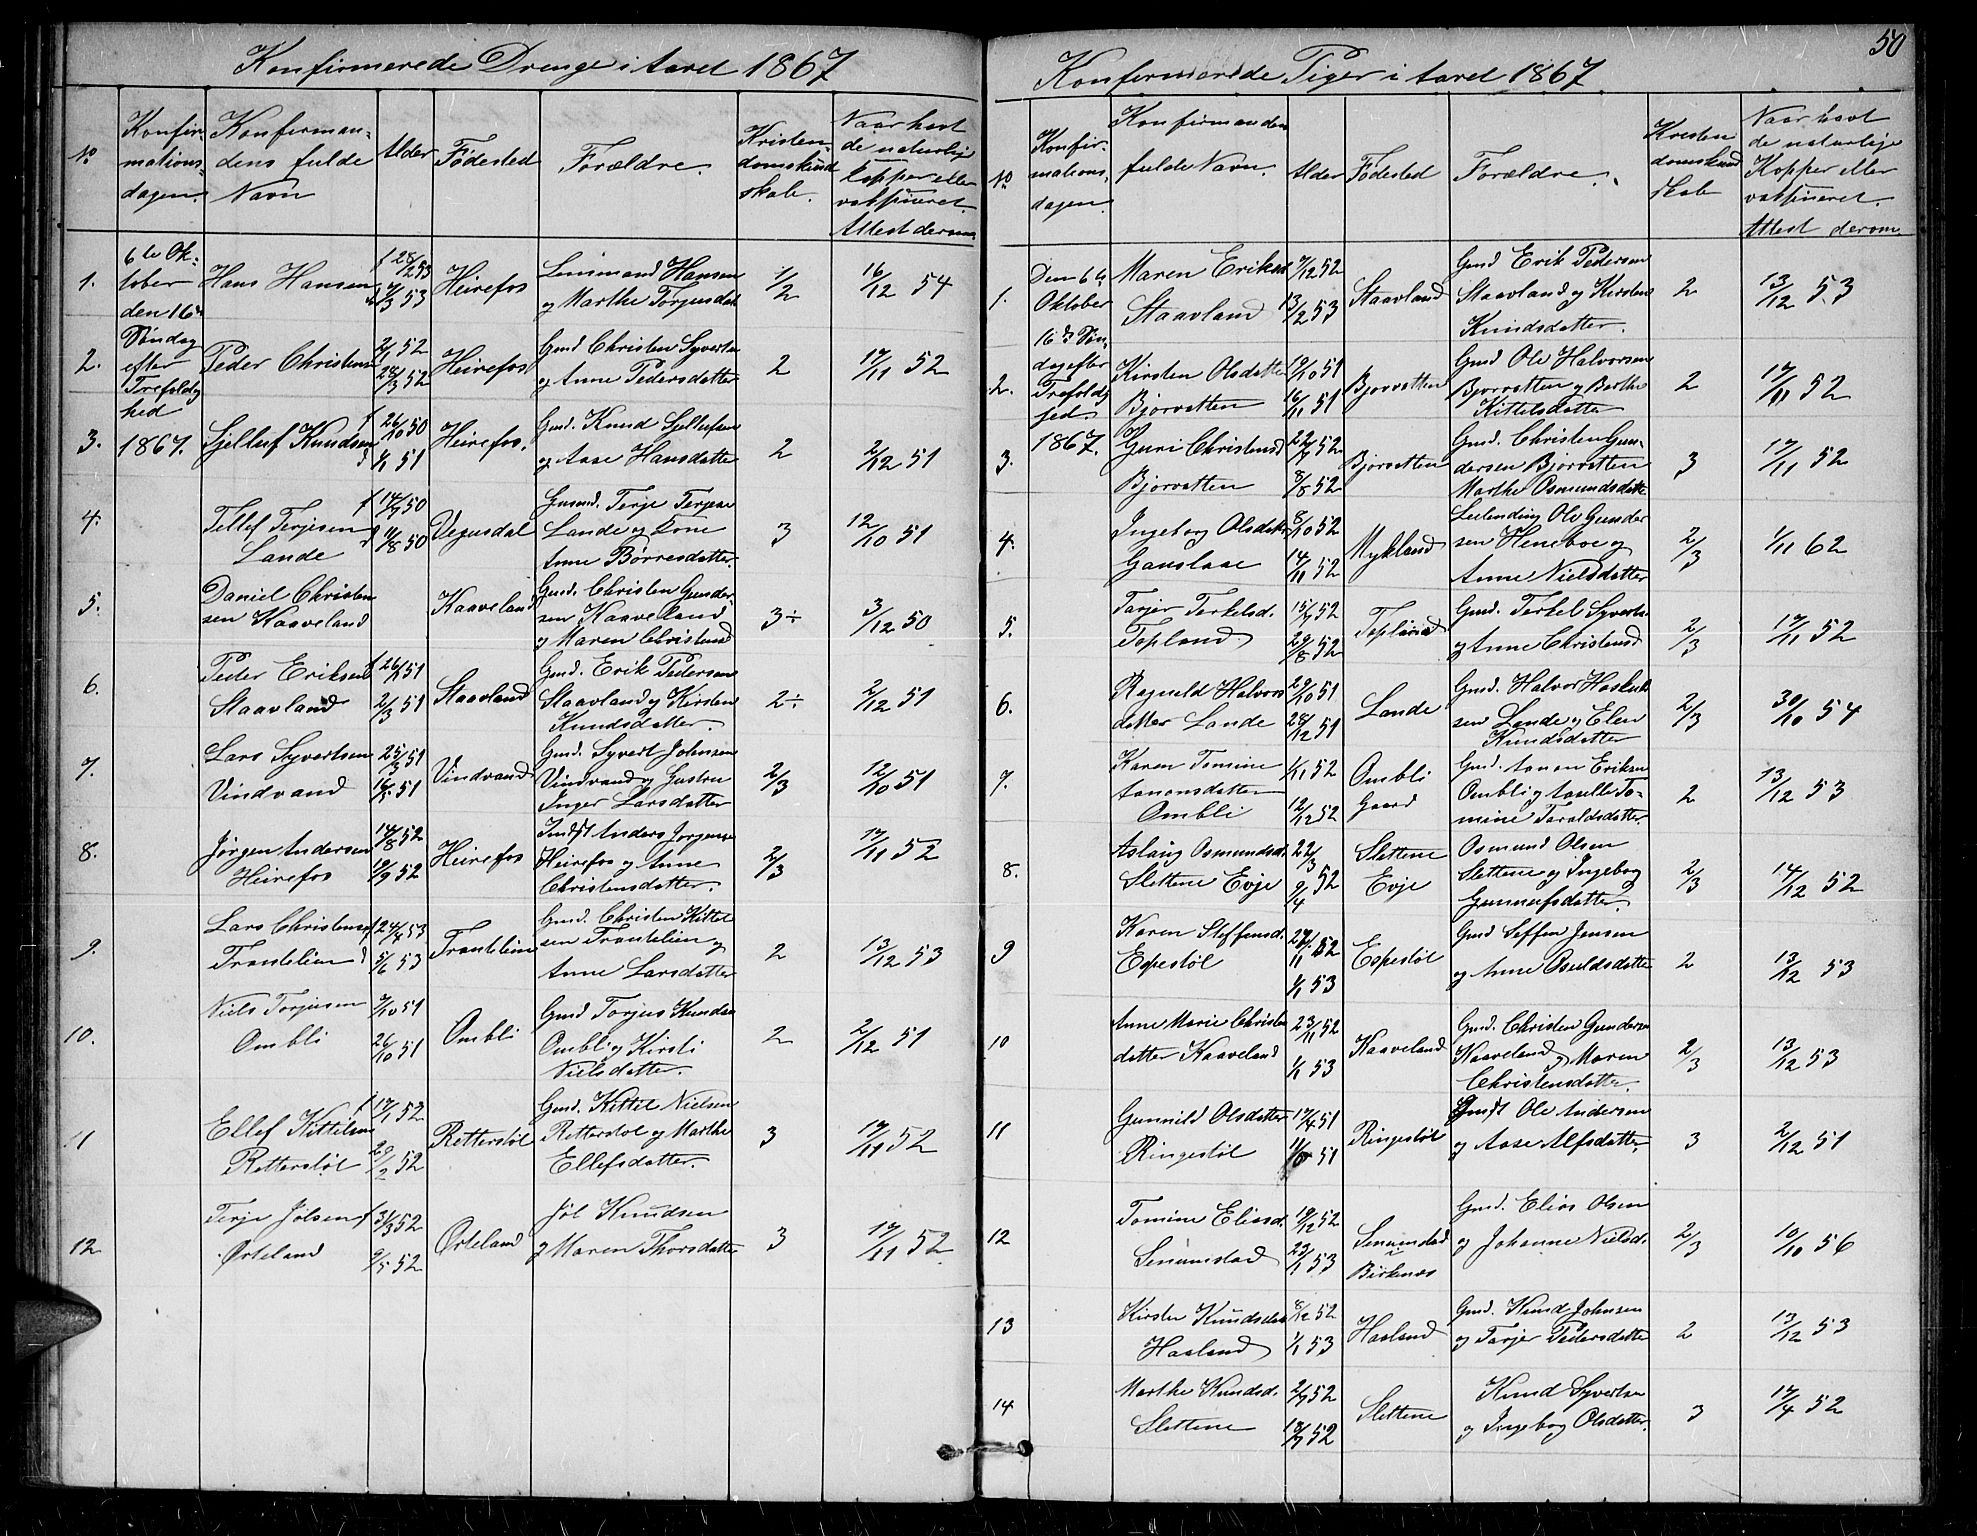 Konfirmerede Drenge i Aaret 1867
No
Konfir-
mations-
dagen.
Konfirman-
dens fulde
Navn
Alder
Fødested
Forældre.
Kristen-
domskund
skab.
Naar havt
de naturlige
Kopper eller
vakſineret.
Attest derom
6te Ok-
tober
den 16de
Søndag
efter
Trefoldig
hed
1867.
1. Hans Hansen
f 28/2 53
d 9/3 53
Heirefos
Hansen
og Marthe Torjusdatt
1/2
16/12 54
2. Peder Christensen
2/1 52
28/3 52
Heirefos
Gmd Christen Syverts
og Anne Pedersdatter
2
17/11 52
3. Sjelluf Knudsen
f 26/10 50
d 1/1 51
Heirefos.
Gmd. Knud Sjellufsen
og Aase Hansdatter
2
2/12 51
4. Tellef Terjesen
Lande
f 14/7 50
d 11/8 50
Vegusdal
Gusmd. Terje Terjese
Lande og Kone
Anne Børresdatter.
3
12/10 51
5. Daniel Christen
sen Kaaveland
Kaaveland
Gmd. Christen Gunder-
sen Kaaveland
og Maren Christensd
3÷
3/12 50
6. Peder Eriksen
Staavland
f 26/1 51
2/3 51
Staavland
Gmd. Erik Pedersen
Staavland og Kirsten
Knudsdatter.
2÷
2/12 51
7. Lars Syvertsen
Vindvand
25/3 51
16/5 51
Vindvand
Gmd. Syvert Johnsen
Vindvand og Gustru
Inger Larsdatter
2/3
12/10 51
8. Jørgen Andersen
Heirefos
14/8 52
19/9 52
Heirefos
Indst Anders Jørgense
Heirefos og Anne
Christensdatter.
2/3
17/11 52
9. Lars Christens
Tranelien
f 24/4 53
d 5/6 53
Tranelien
Gmd. Christen Kittel
sen Tranelien og
Anne Larsdatter
2
13/12 53
10. Niels Torjusen
Ombli
7/10 51
26/10 51
Ombli
Gmd Torjus Knudse
Ombli og Kirsti
Nielsdatter.
2
2/12 51
11 Ellef Kittilsen
Retterstøl
f 17/1 52
29/2 52
Retterstøl
Gmd. Kittil Nielsen
Retterstøl og Marthe
Ellefsdatter.
3
17/11 52
12. Terje Jølsen
Ørteland
f 31/3 52
9/5 52
Ørteland
Jøl Knudsen
og Maren Thorsdatter
3
17/11 52
50
Konfirmerede Piger i Aaret 1867
No
Konfir-
mations-
dagen.
Konfirmanden
fulde Navn.
Alder
Fødested
Forældre.
Kristen
domskund
skab
Naar havt
de naturlige
Kopper eller
vakſineret.
Attest derom.
Den 6te
Oktober
16de Søn-
dag efter
Trefoldig
hed.
1867.
1. Maren Eriksd
Staavland
7/12 52
13/2 53
Staavland
Gmd Erik Pedersen
Staavland og Kirsten
Knudsdatter.
2
13/12 53
2. Kirsten Olsdatter
Bjorvatten
19/10 51
16/11 51
Bjorvatten
Gmd Ole Halvorsen
Bjorvatten og Barthe
Kittelsdatter
2
17/11 52
3. Guri Christensd
Bjorvatten
22/7 52
8/8 52
Bjorvatten
Gmd. Christen Gun-
dersen Bjorvatten
Marthe Osmundsdatte
3
17/11 52
4. Ingeborg Olsdatt
Gauslaae
8/10 52
14/11 52
Mykland
Leilending Ole Gunder
sen Heneboe og
Anne Nielsdatter
2/3
1/11 62
5. Tarjer Terkelsd.
Topland
15/7 52
29/8 52
Topland
Gmd. Terkel Syverts
og Anne Christensd
2/3
17/11 52
6. Ragnild Halvors
datter Lande
29/10 51
28/12 51
Lande
Gmd. Halvor Haskuld
sen Lande og Elen
Knudsdatter
2/3
30/10 54
7. Karen Tomine
Aanonsdatter
Ombli
1/11 52
12/12 52
Ombli
Gaard
Gmd. Aanon Eriksen
Ombli og Aaselle To-
mine Taraldsdatter.
2
13/12 53
8. Aslaug Osmundsd.
Slettene Evje
22/3
9/4 52
Slettene
Evje
Osmund Olsen
Slettene og Ingebog
Gunnufsdatter
2/3
14/12 52
9 Karen Steffensd.
Espestøl
27/11 52
1/1 53
Espestøl
Gmd Seffen Jensen
og Anne Osuldsdatte
2
13/12 53
10 Anne Marie Christen
datter Kaaveland
23/11 52
1/1 53
Kaaveland
Gmd. Christen Gunderse
Kaaveland og Maren
Christensdatter.
2/3
13/12 53
11 Gunnild Olsdatter
Ringestøl
17/4 51
51
Ringestøl
Ole Andersen
og Aase Alfsdatter.
3
2/12 51
12 Tomine Eliasd.
Senumstad
19/12 52
23/1 53
Senumstad
i
Birkenes
Gmd. Elias Olsen
og Johanne Nielsd.
2/3
10/10 56
13 Kirsten Knudsdatt
Haaland
8/12 52
1/1 53
Haaland
Gmd. Knud Johnsen
og Tarjer Pedersdatter
2
13/12 53
14 Marthe Knudsd.
Slettene
2/7 52
18/7 52
Slettene
Knud Syvertsen
og Ingebog Olsdatter.
3
17/4 52